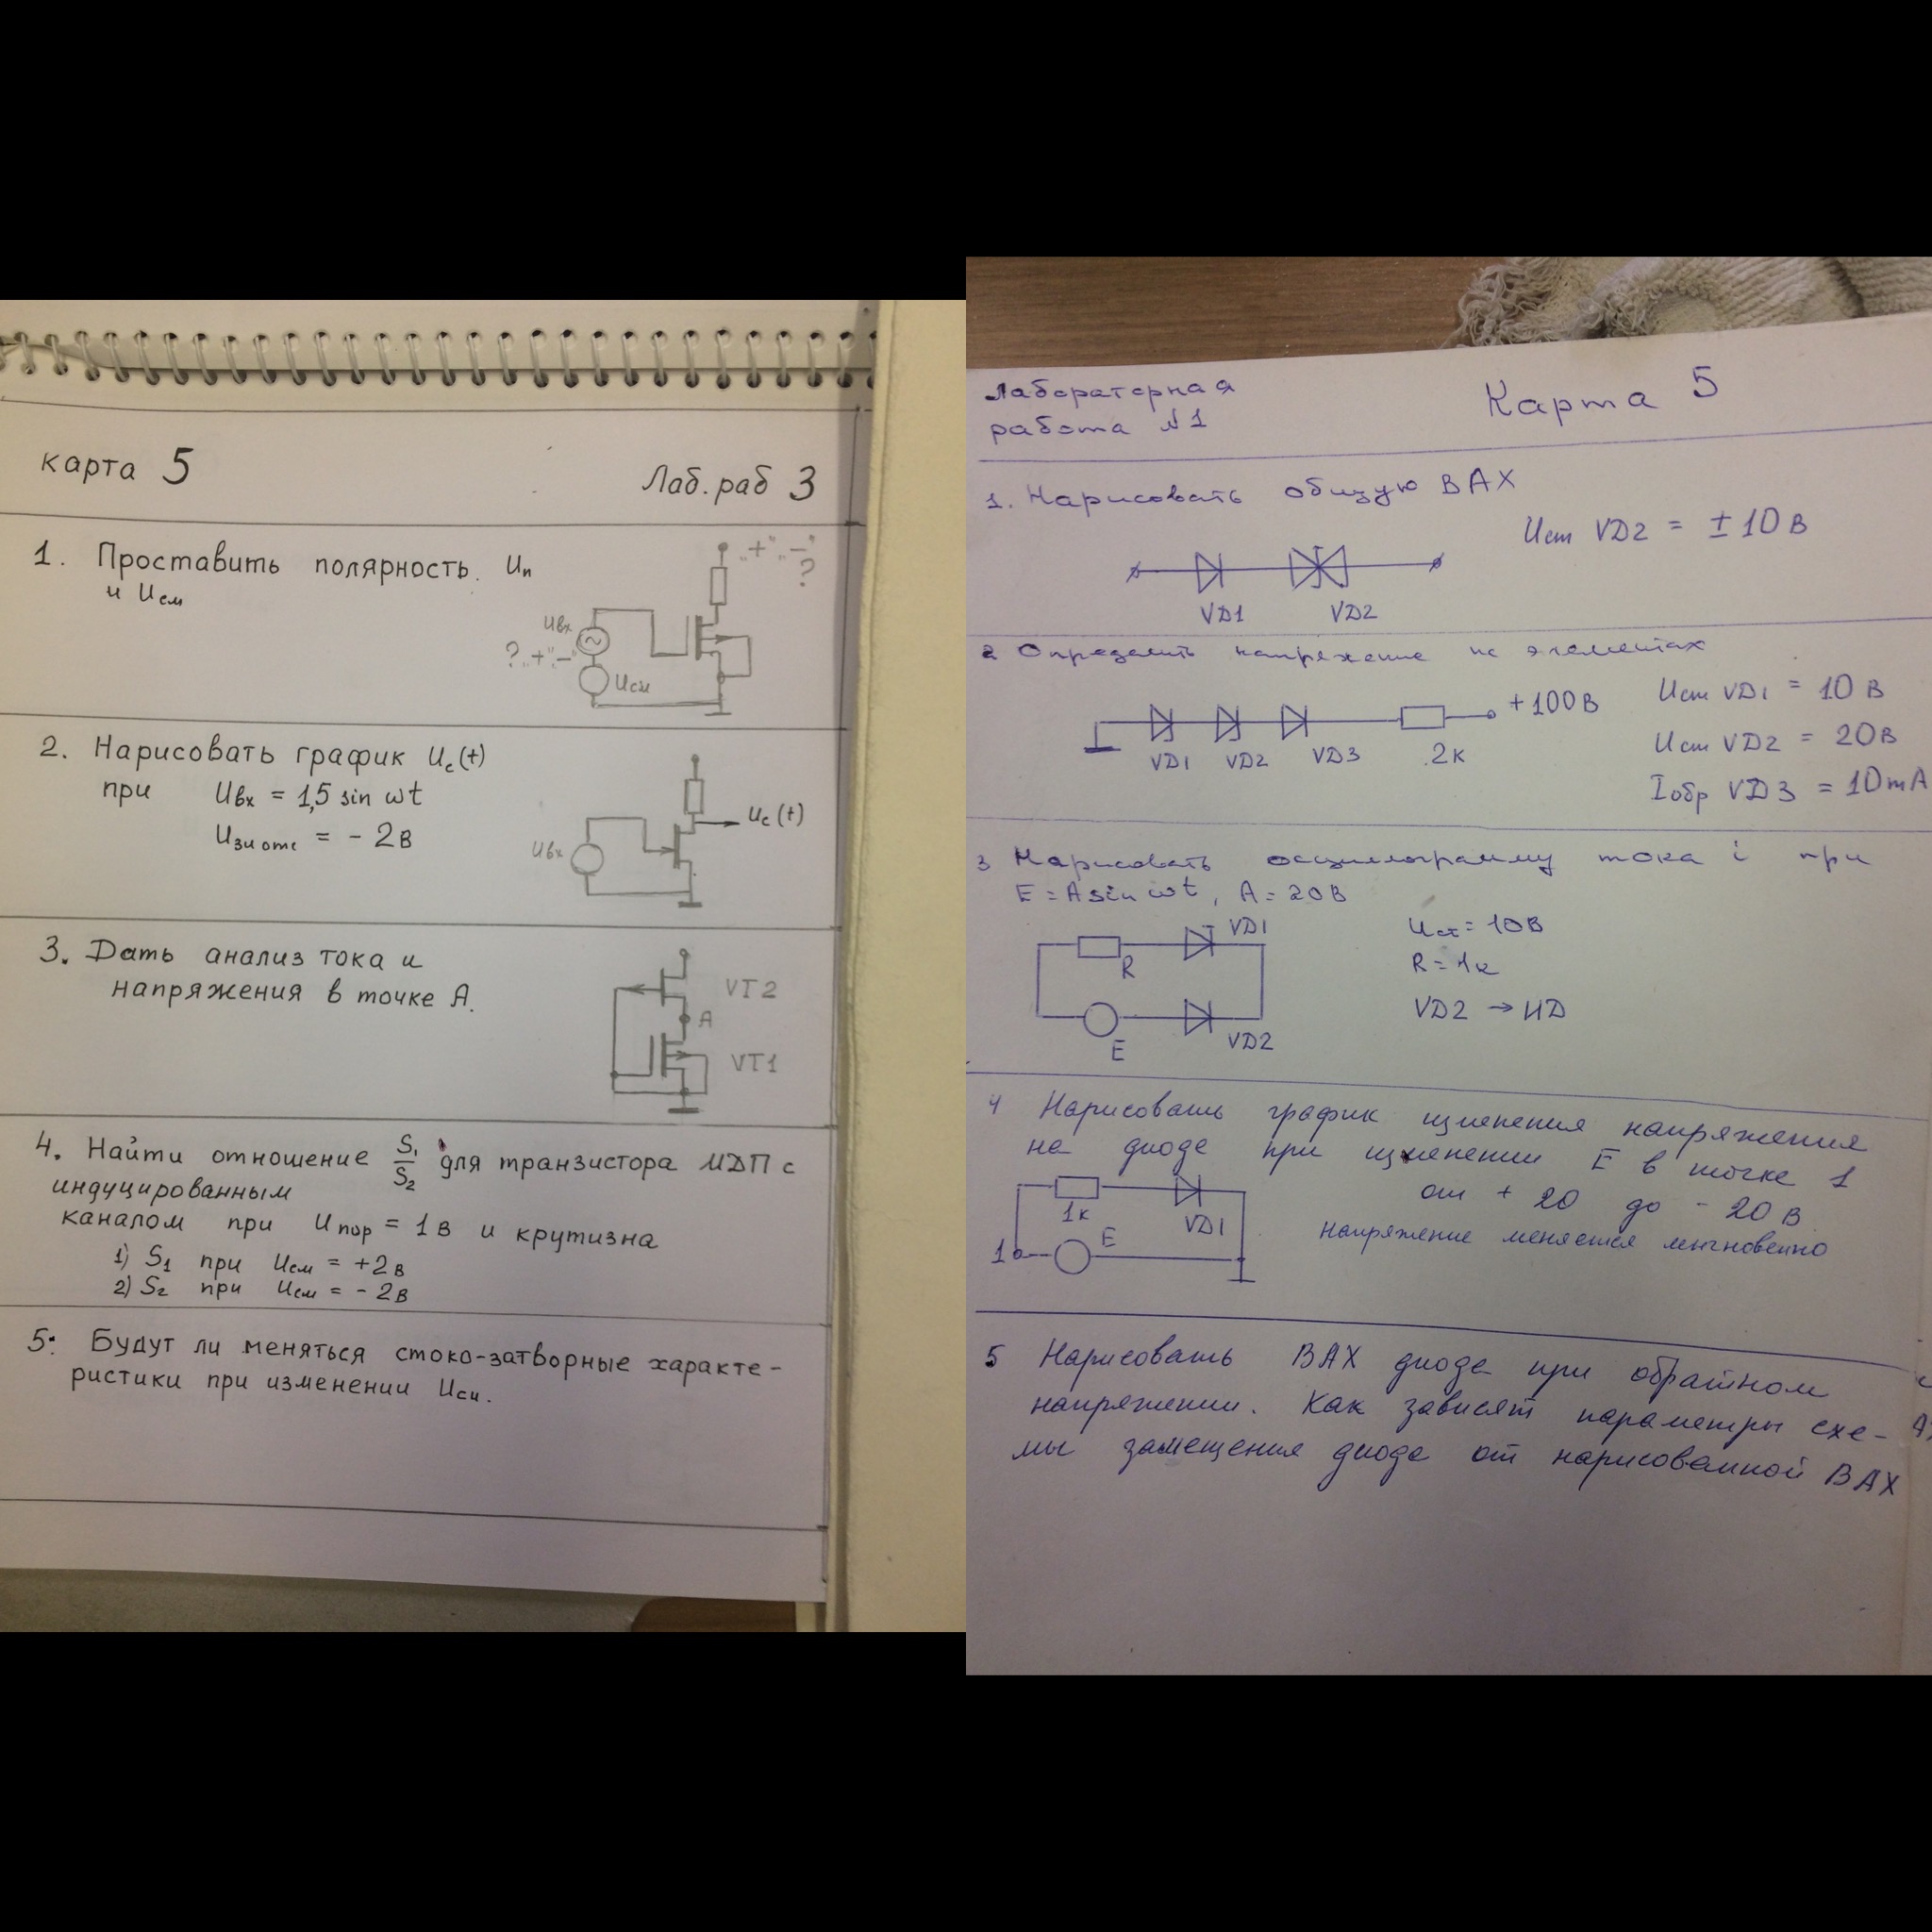 карта 5
Лаб. раб 3
1. Проставить полярность. Uп
и Uсм
„+" „–"
?
Uвх
? „+" „–"
Uсм
2. Нарисовать график Uс(t)
при Uвх = 1,5 sin ωt
Uзи отс = - 2 В
Uвх
Uс(t)
3. Дать анализ тока и
напряжения в точке А.
VT2
А
VT1
4. Найти отношение S₁/S₂ для транзистора МДП с
индуцированным
каналом при Uпор = 1 В и крутизна
1) S₁ при Uсм = +2 В
2) S₂ при Uсм = - 2 В
5. Будут ли меняться стоко-затворные характе-
ристики при изменении Uси.
Лабораторная
работа №1
Карта 5
1. Нарисовать общую ВАХ
Uст VD2 = ± 10 В
VD1 VD2
2 Определить напряжение на элементах
+100 В
VD1 VD2 VD3 2к
Uст VD1 = 10 В
Uст VD2 = 20 В
Iобр VD3 = 10 mA
3 Нарисовать осциллограмму тока i при
E = A sin ωt, A = 20 В
VD1
R
E
VD2
Uст = 10 В
R = 1к
VD2 → ИД
4 Нарисовать график изменения напряжения
на диоде при изменении E в точке 1
от + 20 до - 20 В
напряжение меняется мгновенно
1к
VD1
1
E
5 Нарисовать ВАХ диода при обратном
напряжении. Как зависят параметры схе-
мы замещения диода от нарисованной ВАХ